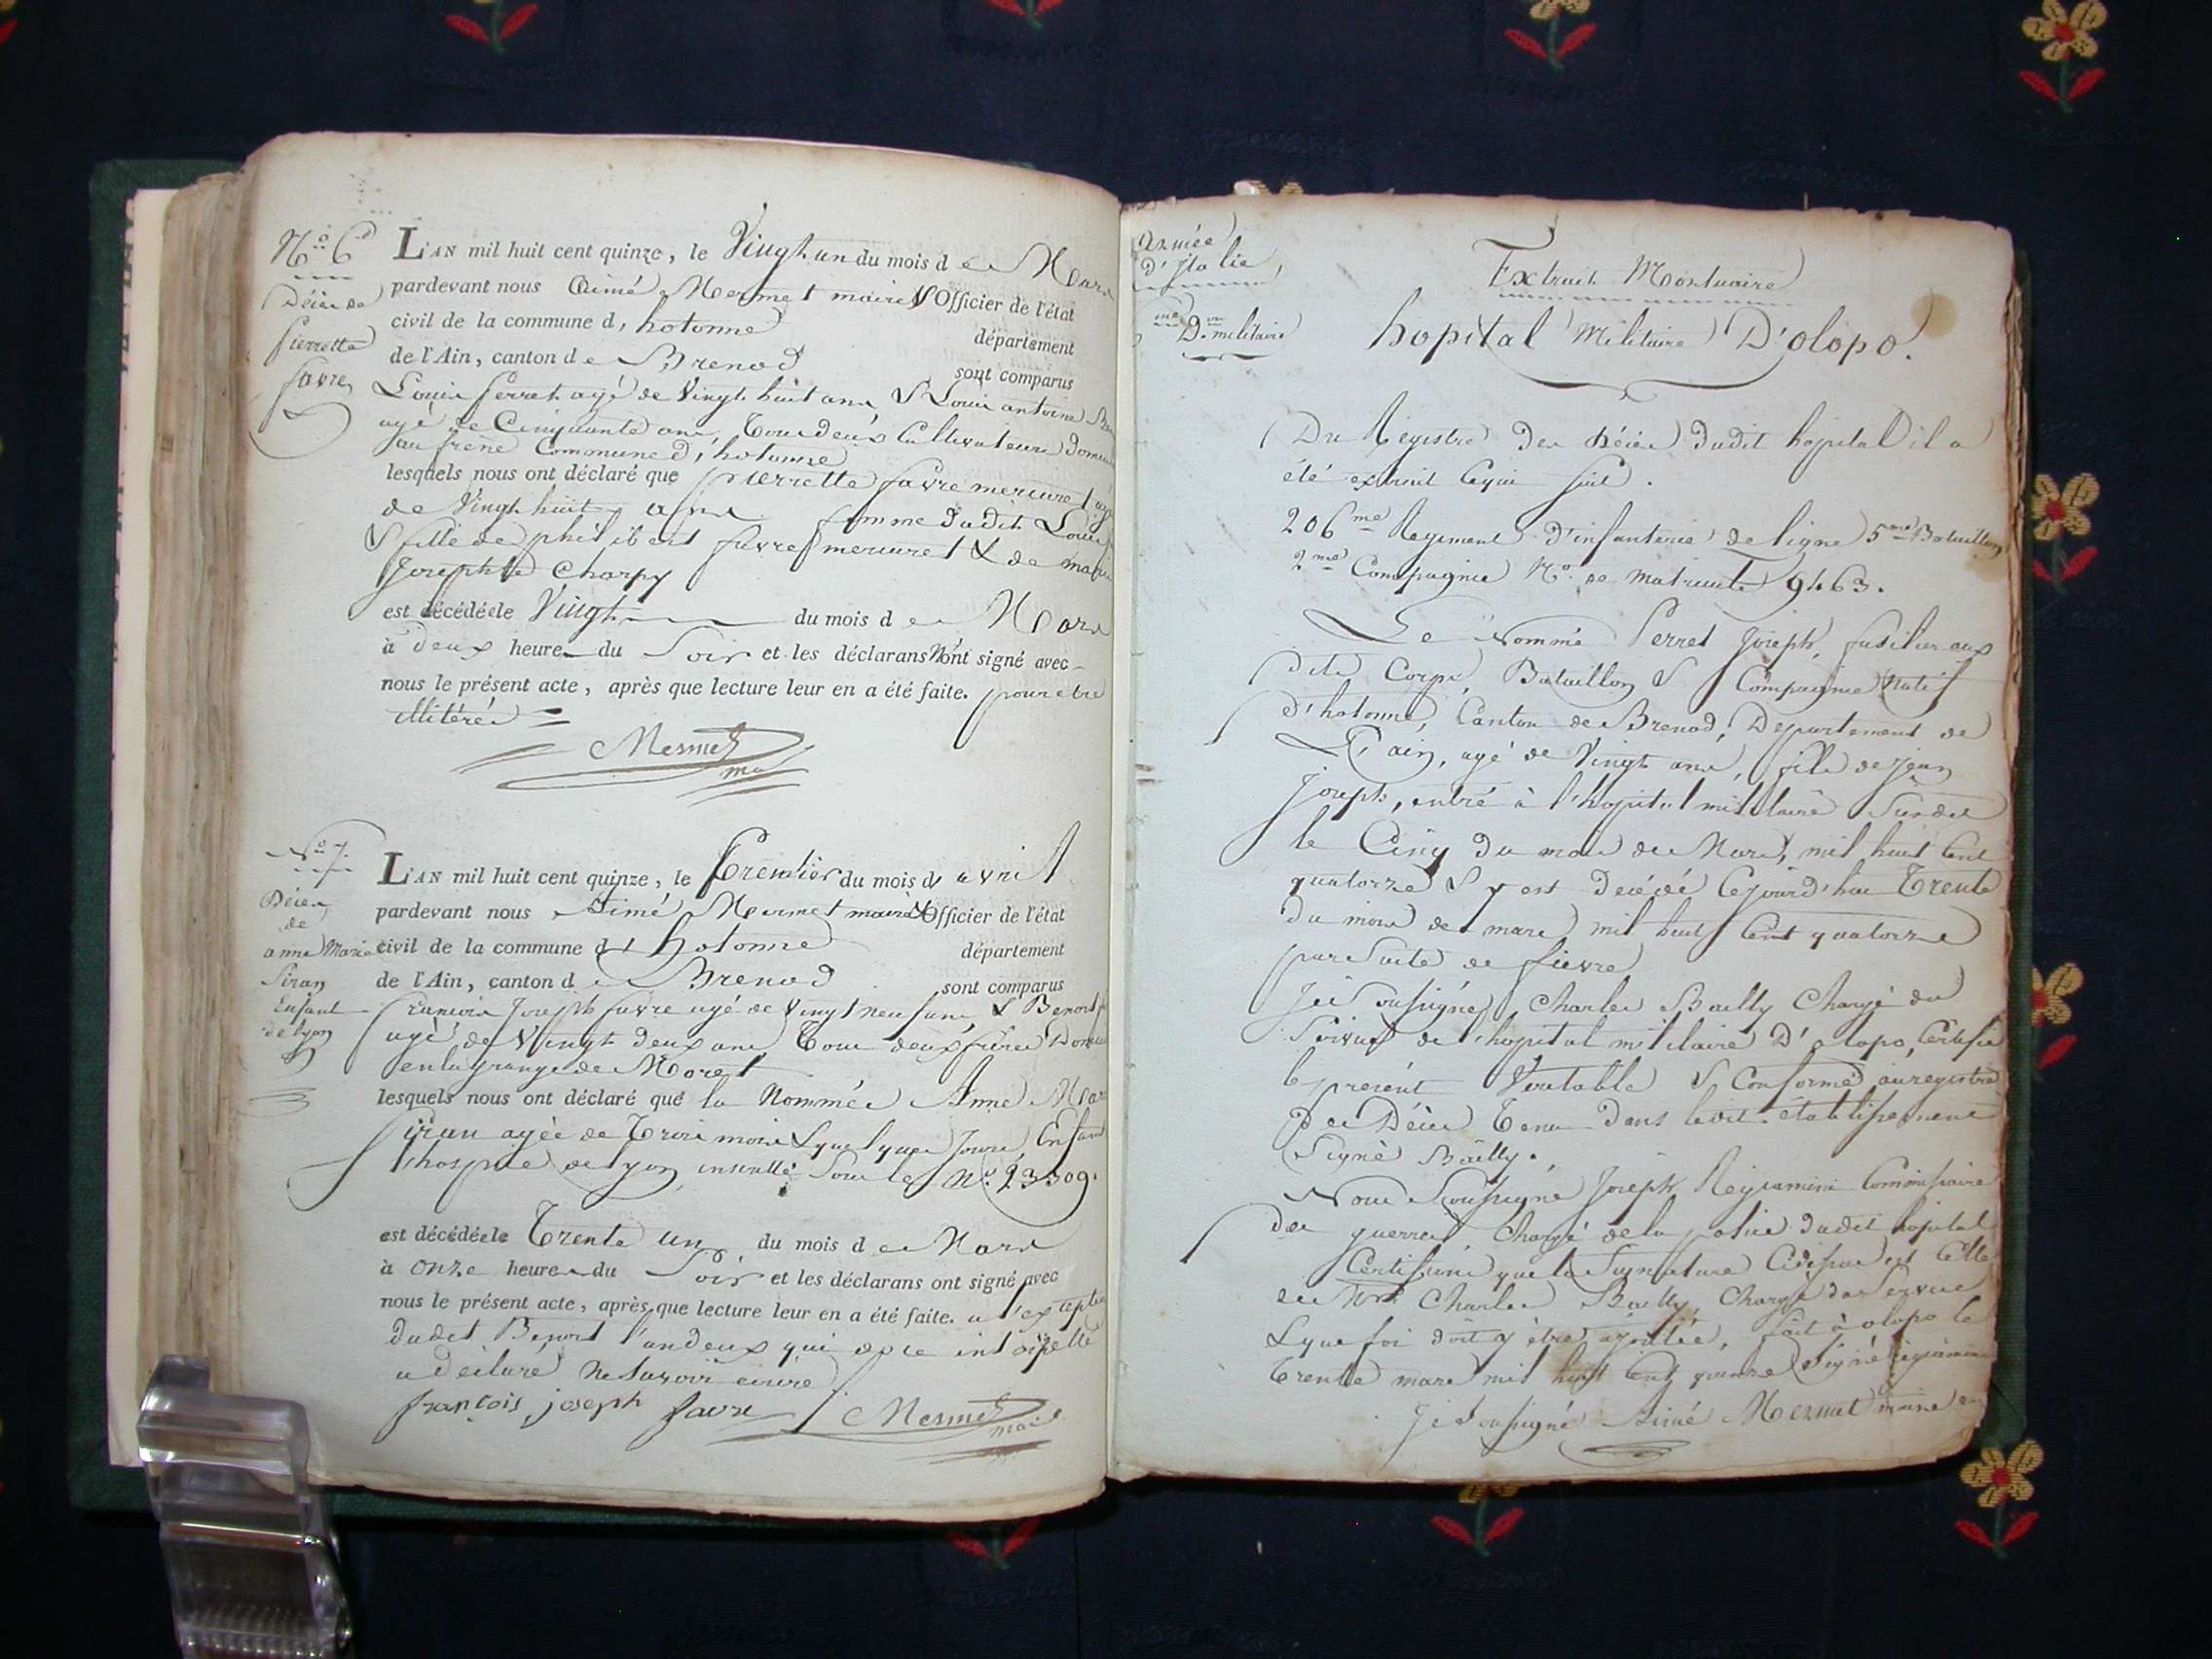 N.o 6
Décès de
pierrette
favre
L'AN mil huit cent quinze, le Vingt un du mois de Mars
pardevant nous Aimé Mermet maire & Officier de l'état
civil de la commune d'hotonne département
de l'Ain, canton de Brenod sont comparus
Louis perret agé de Vingt huit ans & Louis antoine
agé de Cinquante ans, Tous deux Cultivateurs
au frene Commune d'hotonne
lesquels nous ont déclaré que pierrette favre mercuret
de Vingt huit ans femme dudit Louis
& fille de philibert favre mercuret & de marie
Josephte Charpy
est décédée le Vingt du mois de Mars
à deux heures du Soir et les déclarans n'ont signé avec
nous le présent acte, après que lecture leur en a été faite. pour etre
illitérés
Mermet
N.o 7.
Décès
de
anne Marie
Siran
Enfant
de lyon
L'AN mil huit cent quinze, le Premier du mois d'avril
pardevant nous Aimé Mermet maire & Officier de l'état
civil de la commune d'hotonne département
de l'Ain, canton de Brenod sont comparus
francois Joseph favre agé de Vingt neuf ans & Benoit
agé de Vingt deux ans Tous deux freres
en la grange de Moret
lesquels nous ont déclaré que la Nommée Anne
Siran agée de Trois mois & quelques Jours, Enfant
l'hospice de lyon, Sous le N.o 23309.
est décédée le Trente un du mois de Mars
à onze heures du Soir et les déclarans ont signé avec
nous le présent acte, après que lecture leur en a été faite. a l'exception
dudit Benoit l'un deux qui de ce
a déclaré ne Savoir écrire
françois joseph favre Mermet
Armée
d'Italie,
D.on militaire
Extrait Mortuaire
hopital Militaire D'olopo.
Du Registre des Décès dudit hopital il a
été extrait Ce qui suit.
206me Regiment d'infanterie de ligne 5me Bataillon
2me Compagnie N.o de matricule 9463.
Le Nommé Perret Joseph, fusilier aux
dits Corps, Bataillon & Compagnie Natif
d'hotonne, Canton de Brenod, Departement de
L'ain, agé de Vingt ans, fils de Jean
Joseph, entré à l'hopital militaire Susdit
le Cinq du mois de Mars, mil huit Cent
quatorze & y est Decédé Cejourd'hui Trente
du mois de mars mil huit Cent quatorze
par Suite de fievre
Je Sousigné Charles Bailly Chargé du
Service de l'hopital militaire D'olopo, Certifie
le present Veritable & Conforme au registre
des Décès Tenu Dans ledit établissement
Signé Bailly.
Nous Soussigné Joseph Commissaire
des guerres, Chargé de la police dudit hopital
Certifions que la Signature Cidessus est Celle
de Mr. Charles Bailly, Chargé du Service
& que foi doit y être ajoutée, fait à olopo le
Trente mars mil huit Cent Signé
Je Soussigné Aimé Mermet maire